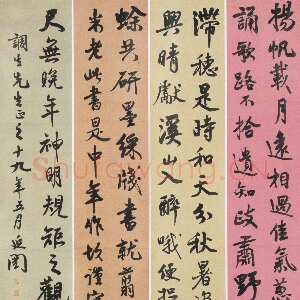 揚帆載月遠相過佳氣
誦歌路不拾遺知政肅野
滯穗是時和天分秋暑
興晴獻溪山入醉哦便
蜍共研墨綵牋書就剪
米老此書是中年作故謹
尺無晚年神明規矩之觀
調生先生正之十九年五月延闓